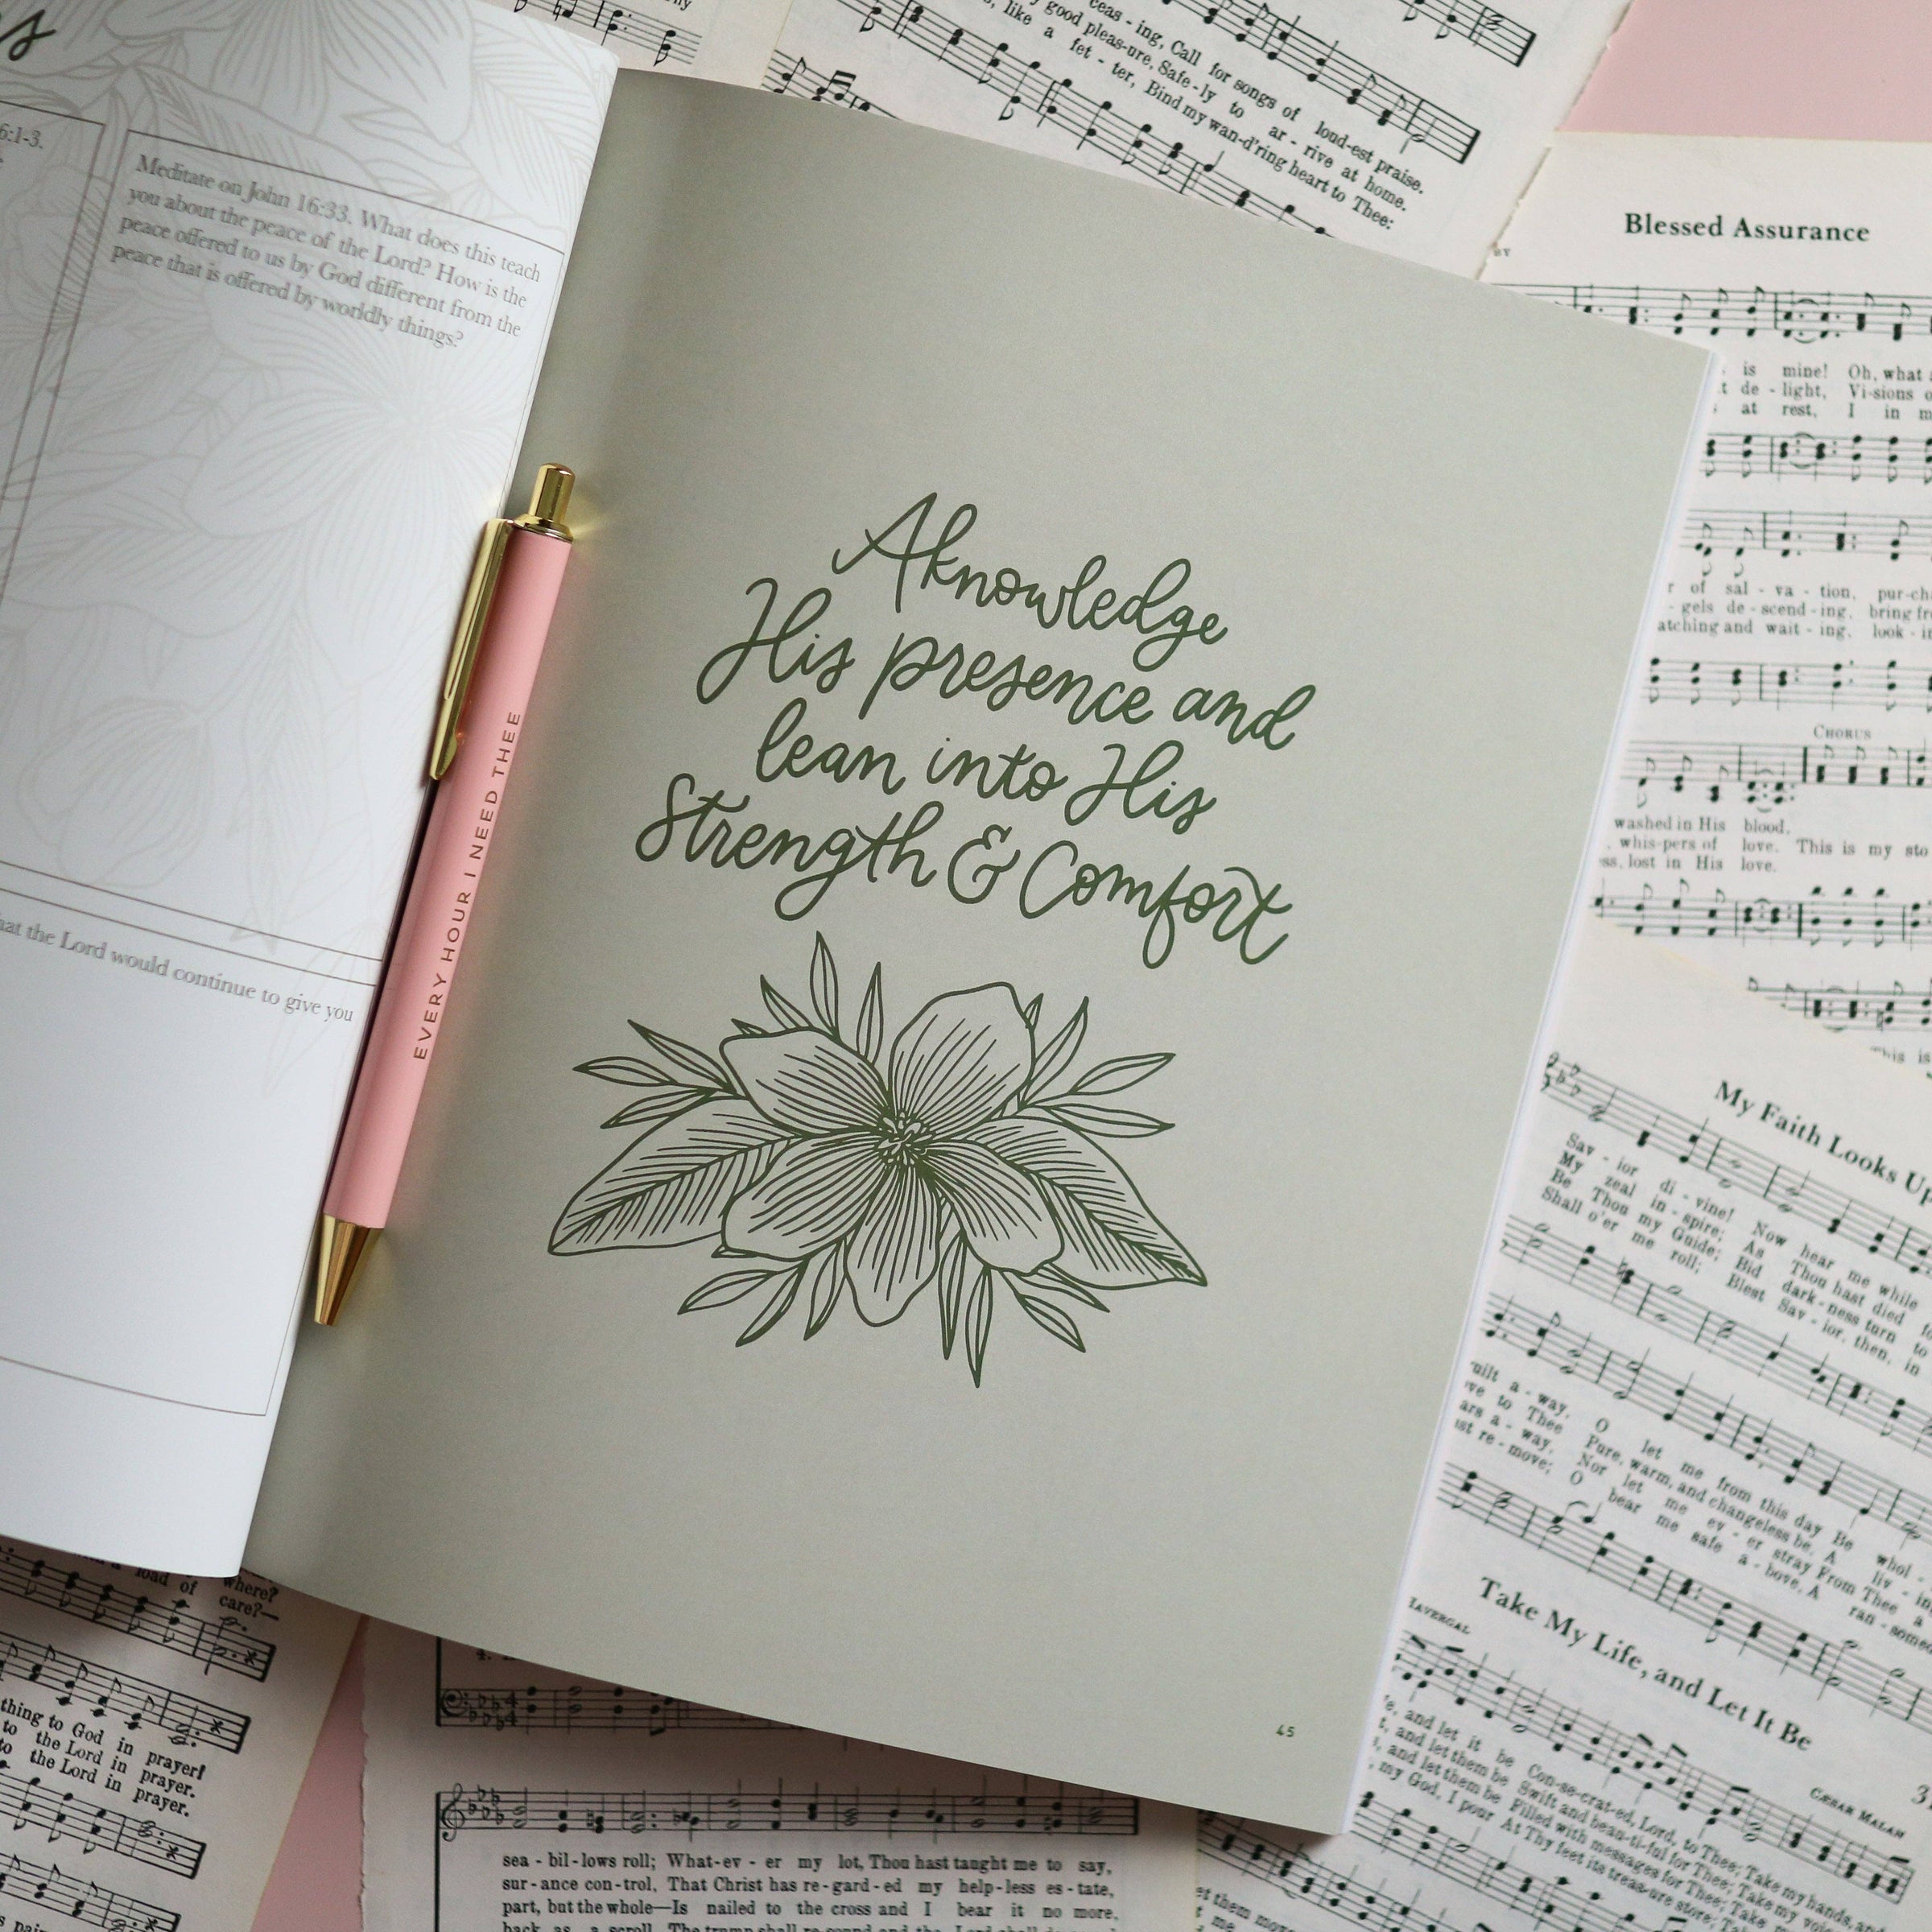 6:1-3.
Meditate on John 16:33. What does this teach
you about the peace of the Lord? How is the
peace offered to us by God different from the
peace that is offered by worldly things?
hat the Lord would continue to give you
EVERY HOUR I NEED THEE
Aknowledge
His presence and
lean into His
Strength & Comfort
45
ceas - ing, Call for songs of loud-est praise.
good pleas-ure, Safe-ly to ar - rive at home.
like a fet - ter, Bind my wan-d'ring heart to Thee:
Blessed Assurance
is mine! Oh, what
de - light, Vi-sions
at rest, I in
of sal - va - tion, pur-cha
gels de - scend - ing, bring
atching and wait - ing, look - in
CHORUS
washed in His blood.
whis-pers of love. This is my sto
lost in His love.
This is
My Faith Looks Up
Sav - ior di - vine! Now hear me while
My zeal in - spire; As Thou hast died
Be Thou my Guide; Bid dark - ness turn to
Shall o'er me roll; Blest Sav - ior, then, in
a - way, O let me from this day Be whol -
to Thee Pure, warm, and changeless be, A liv - in
a - way, Nor let me ev - er stray From Thee a
re - move; O bear me safe a - bove, A ran - some
Take My Life, and Let It Be
HAVERGAL
CÆSAR MALAN
and let it be Con-se-crat-ed, Lord, to Thee; Take my hands, and
and let them be Swift and beau-ti-ful for Thee; Take my voice,
and let them be Filled with messages for Thee; Take my
my God, I pour At Thy feet its treas-ure store;
load of
where?
care?—
thing to God in prayer!
to the Lord in prayer.
to the Lord in prayer.
sea - bil-lows roll; What-ev - er my lot, Thou hast taught me to say,
sur-ance con-trol, That Christ has re-gard-ed my help-less es-tate,
part, but the whole—Is nailed to the cross and I bear it no more,
back as a scroll, The trump shall re-sound and the Lord shall